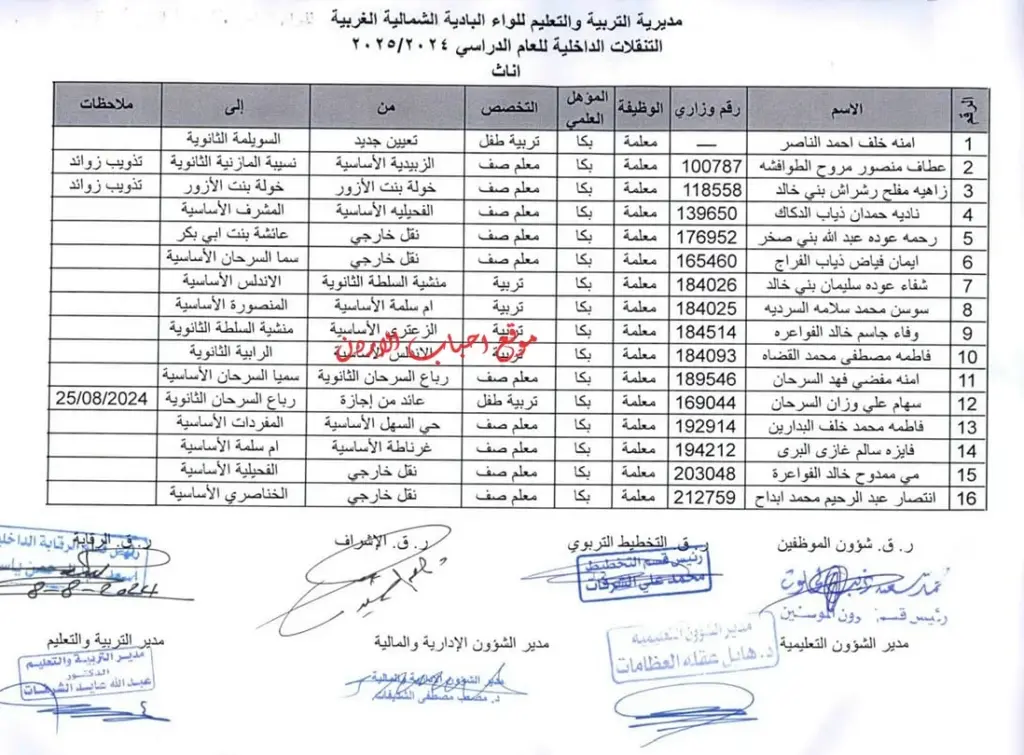 مديرية التربية والتعليم للواء البادية الشمالية الغربية
التنقلات الداخلية للعام الدراسي ٢٠٢٥/٢٠٢٤
اناث
الرقم الاسم رقم وزاري الوظيفة المؤهل العلمي التخصص من إلى ملاحظات
1 امنه خلف احمد الناصر — معلمة بكا تربية طفل تعيين جديد السويلمة الثانوية
2 عطاف منصور مروح الطوافشه 100787 معلمة بكا معلم صف الزبيدية الأساسية نسيبة المازنية الثانوية تذويب زوائد
3 زاهيه مفلح رشراش بني خالد 118558 معلمة بكا معلم صف خولة بنت الأزور خولة بنت الأزور تذويب زوائد
4 ناديه حمدان ذياب الدكاك 139650 معلمة بكا معلم صف الفحيليه الأساسية المشرف الأساسية
5 رحمه عوده عبد الله بني صخر 176952 معلمة بكا معلم صف نقل خارجي عائشة بنت ابي بكر
6 ايمان فياض ذياب الفراج 165460 معلمة بكا معلم صف نقل خارجي سما السرحان الأساسية
7 شفاء عوده سليمان بني خالد 184026 معلمة بكا تربية منشية السلطة الثانوية الاندلس الأساسية
8 سوسن محمد سلامه السرديه 184025 معلمة بكا تربية ام سلمة الأساسية المنصورة الأساسية
9 وفاء جاسم خالد الفواعره 184514 معلمة بكا تربية الزعتري الأساسية منشية السلطة الثانوية
10 فاطمه مصطفى محمد القضاه 184093 معلمة بكا تربية الاندلس الأساسية الرابية الثانوية
موقع احباب الاردن
11 امنه مفضي فهد السرحان 189546 معلمة بكا معلم صف رباع السرحان الثانوية سميا السرحان الأساسية
12 سهام علي وزان السرحان 169044 معلمة بكا تربية طفل عائد من إجازة رباع السرحان الثانوية 25/08/2024
13 فاطمه محمد خلف البدارين 192914 معلمة بكا معلم صف حي السهل الأساسية المفردات الأساسية
14 فايزه سالم غازى البرى 194212 معلمة بكا معلم صف غرناطة الأساسية ام سلمة الأساسية
15 مي ممدوح خالد الفواعرة 203048 معلمة بكا معلم صف نقل خارجي الفحيلية الأساسية
16 انتصار عبد الرحيم محمد ابداح 212759 معلمة بكا معلم صف نقل خارجي الخناصري الأساسية
ر. ق. شؤون الموظفين ر. ق. التخطيط التربوي ر. ق. الإشراف ر. ق. الرقابة
رئيس قسم التخطيط
محمد علي الشرفات
رئيس قسم الرقابة الداخلية
8-8-2024
مدير الشؤون التعليمية مدير الشؤون الإدارية والمالية مدير التربية والتعليم
مدير الشؤون التعليمية
د. هايل عقله العظامات
مدير الشؤون الإدارية والمالية
د. مصعب مصطفى
مدير التربية والتعليم
الدكتور
عبد الله عايد الشرفات